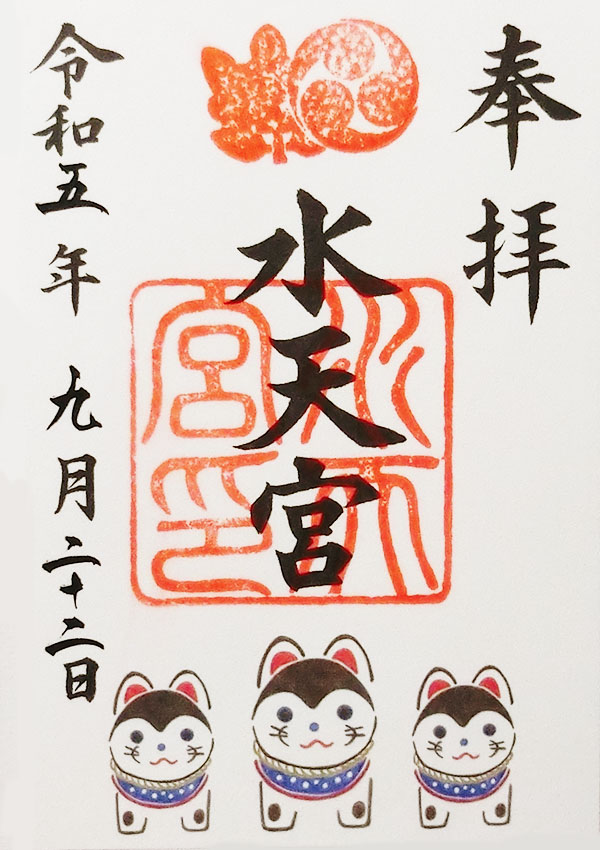 奉拝
水天宮
水天宮印
令和五年 九月二十二日